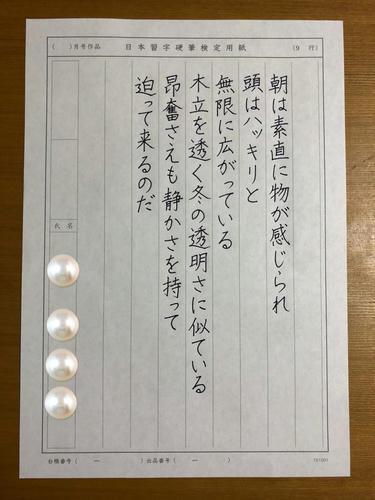 (　)月号作品　日本習字硬筆検定用紙　(9 行)
朝は素直に物が感じられ
頭はハッキリと
無限に広がっている
木立を透く冬の透明さに似ている
昂奮さえも静かさを持って
迫って来るのだ
氏名
台帳番号(　ー　)出品番号(　ー　)